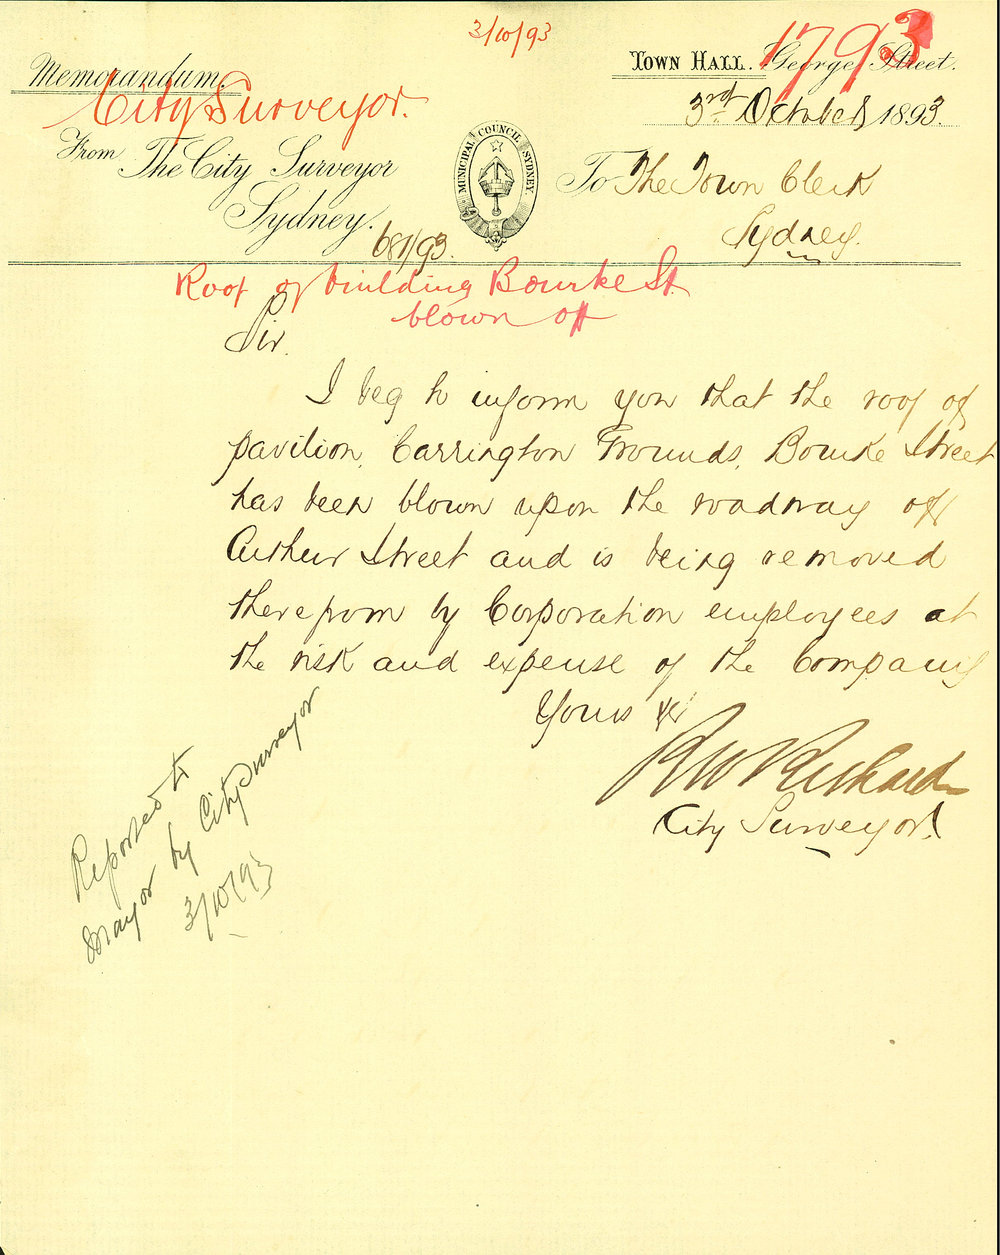 3/10/93
1793
Memorandum.
Town Hall. George Street.
City Surveyor.
3rd October 1893.
From The City Surveyor
Sydney.
MUNICIPAL COUNCIL SYDNEY.
To The Town Clerk
Sydney.
681/93.
Roof of building Bourke St.
blown off
Sir.
I beg to inform you that the roof of
pavilion, Carrington Grounds, Bourke Street
has been blown upon the roadway off
Arthur Street and is being removed
therefrom by Corporation employees at
the risk and expense of the Company
Yours &c
R W Richards
City Surveyor.
Reported to
Mayor by City Surveyor
3/10/93